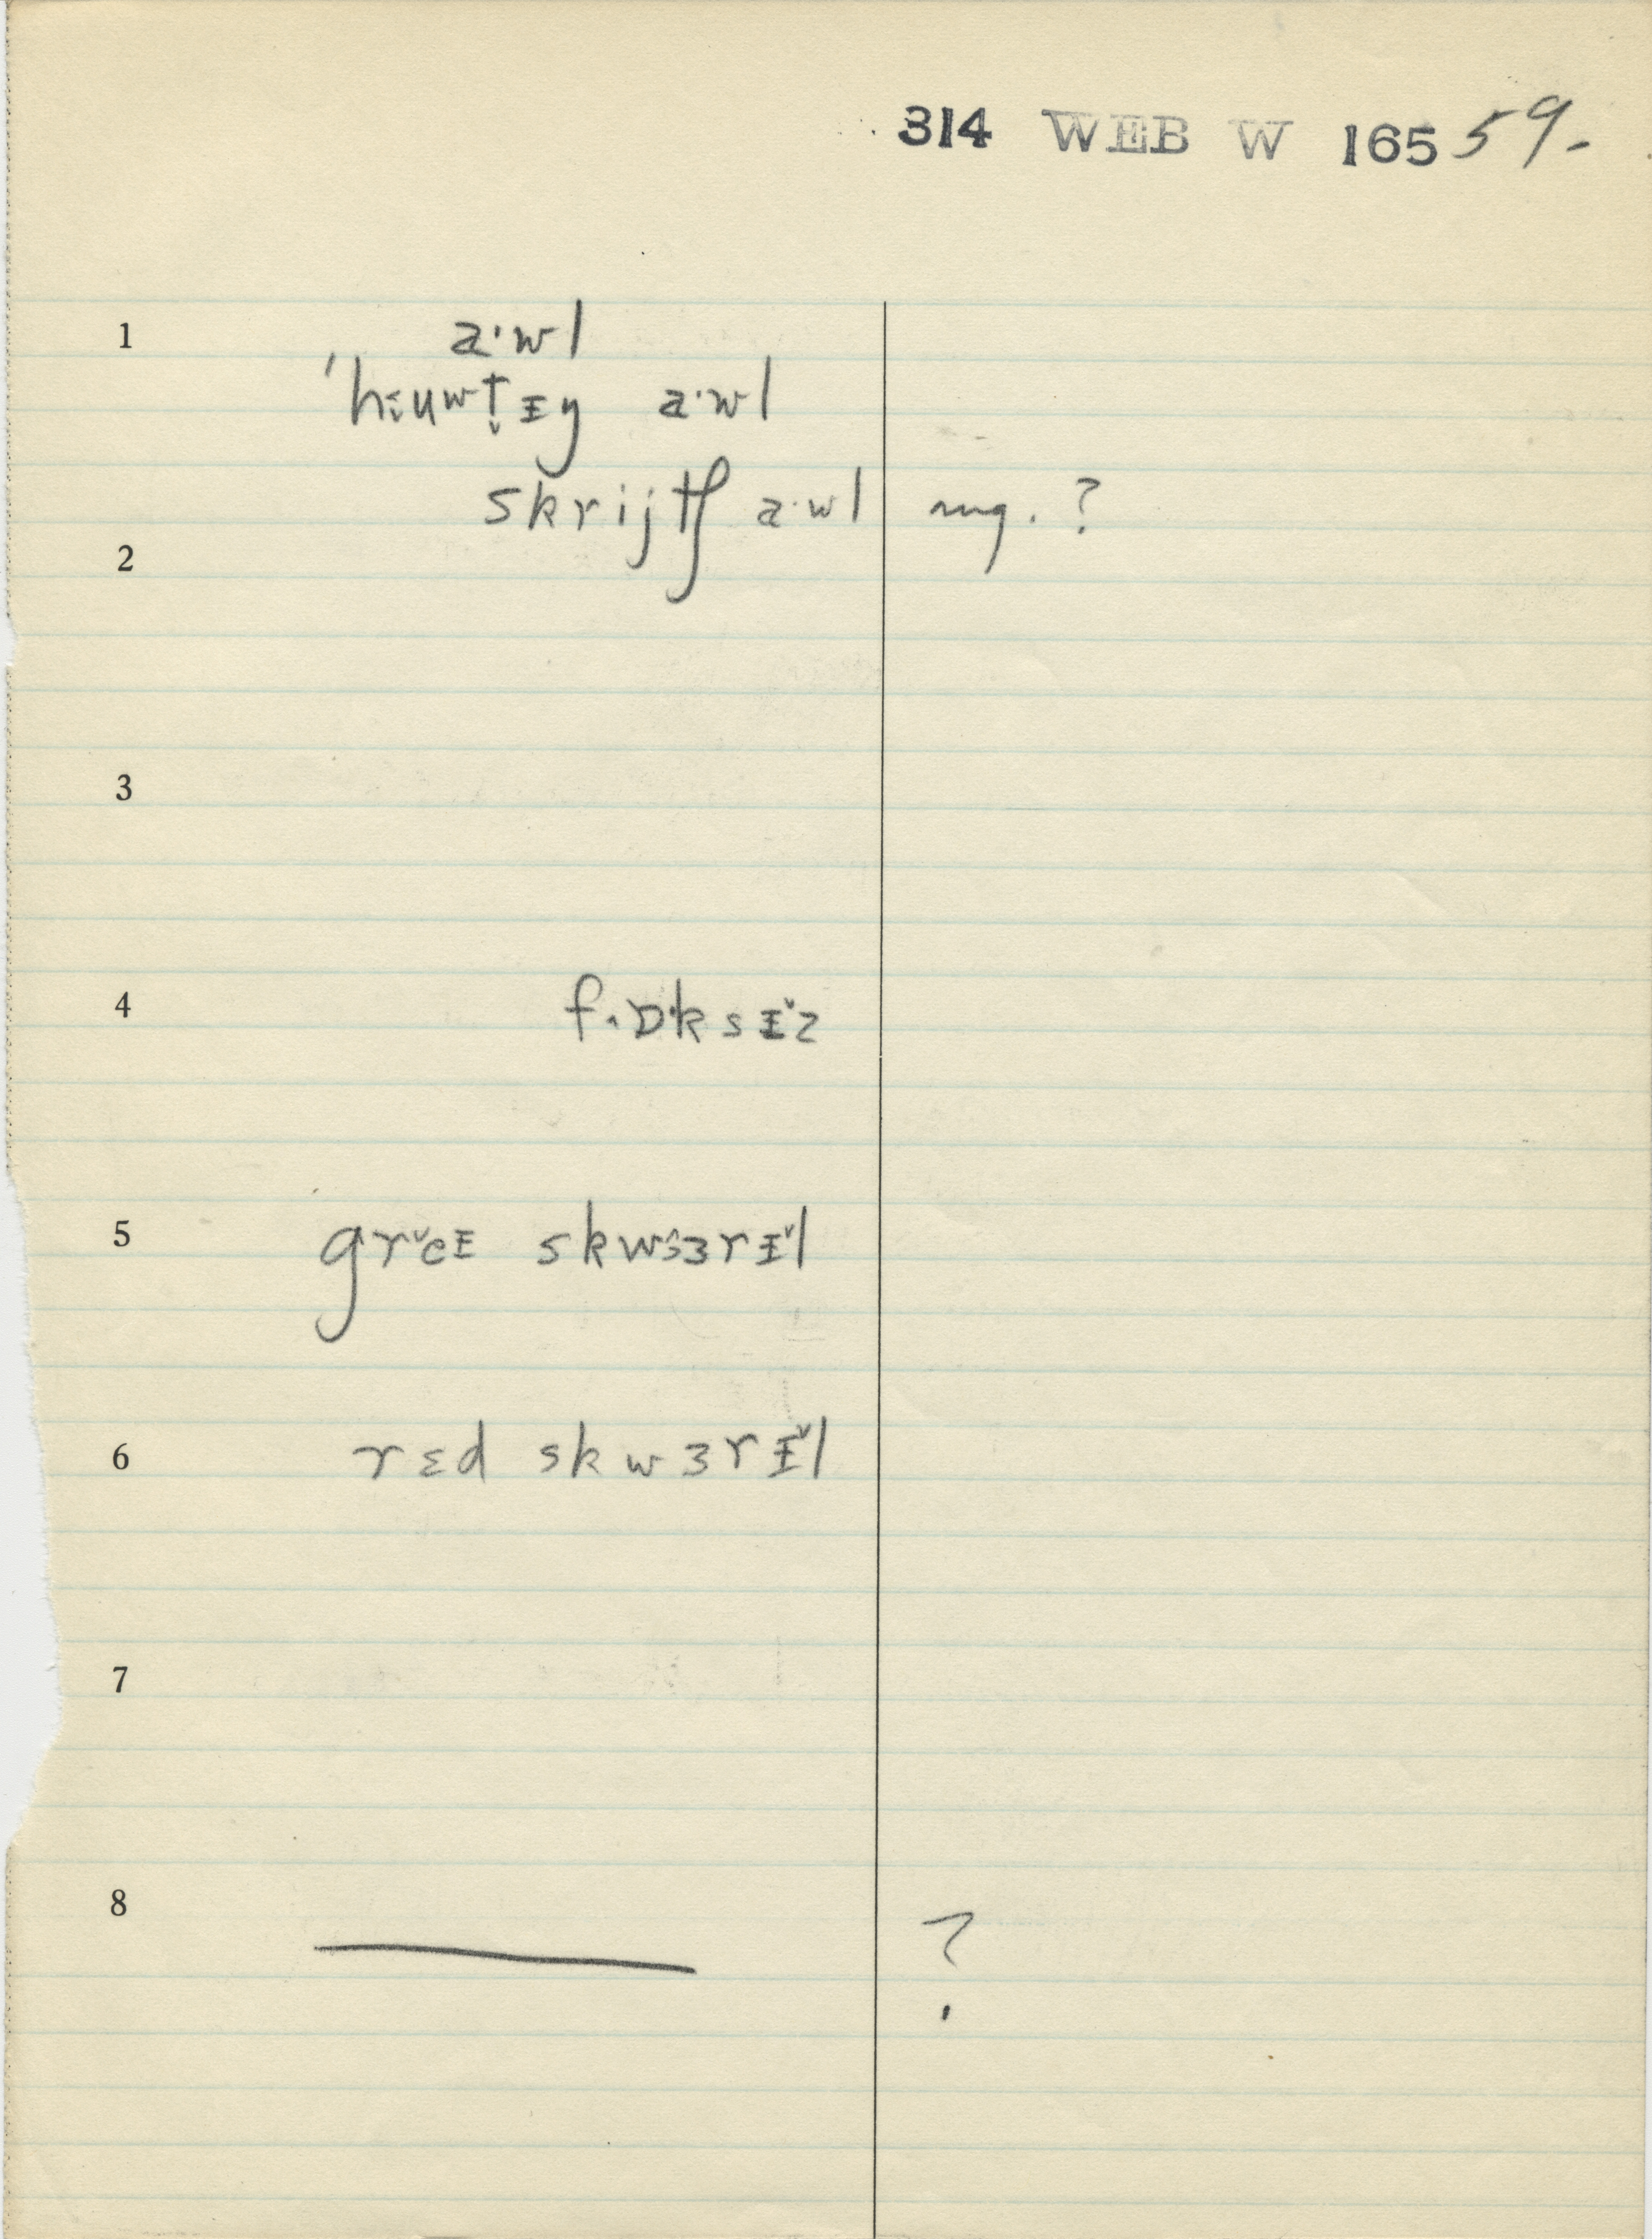 314 WEB W 165 59.-
1 a·wl
'hɛuwt̬ɪŋ a·wl
skrijtʃ a·wl mg. ?
2
3
4 fɒksɪ̌z
5 grěɪ skwɜrɪ̌l
6 rɛd skwɜrɪ̌l
7
8 ———
?